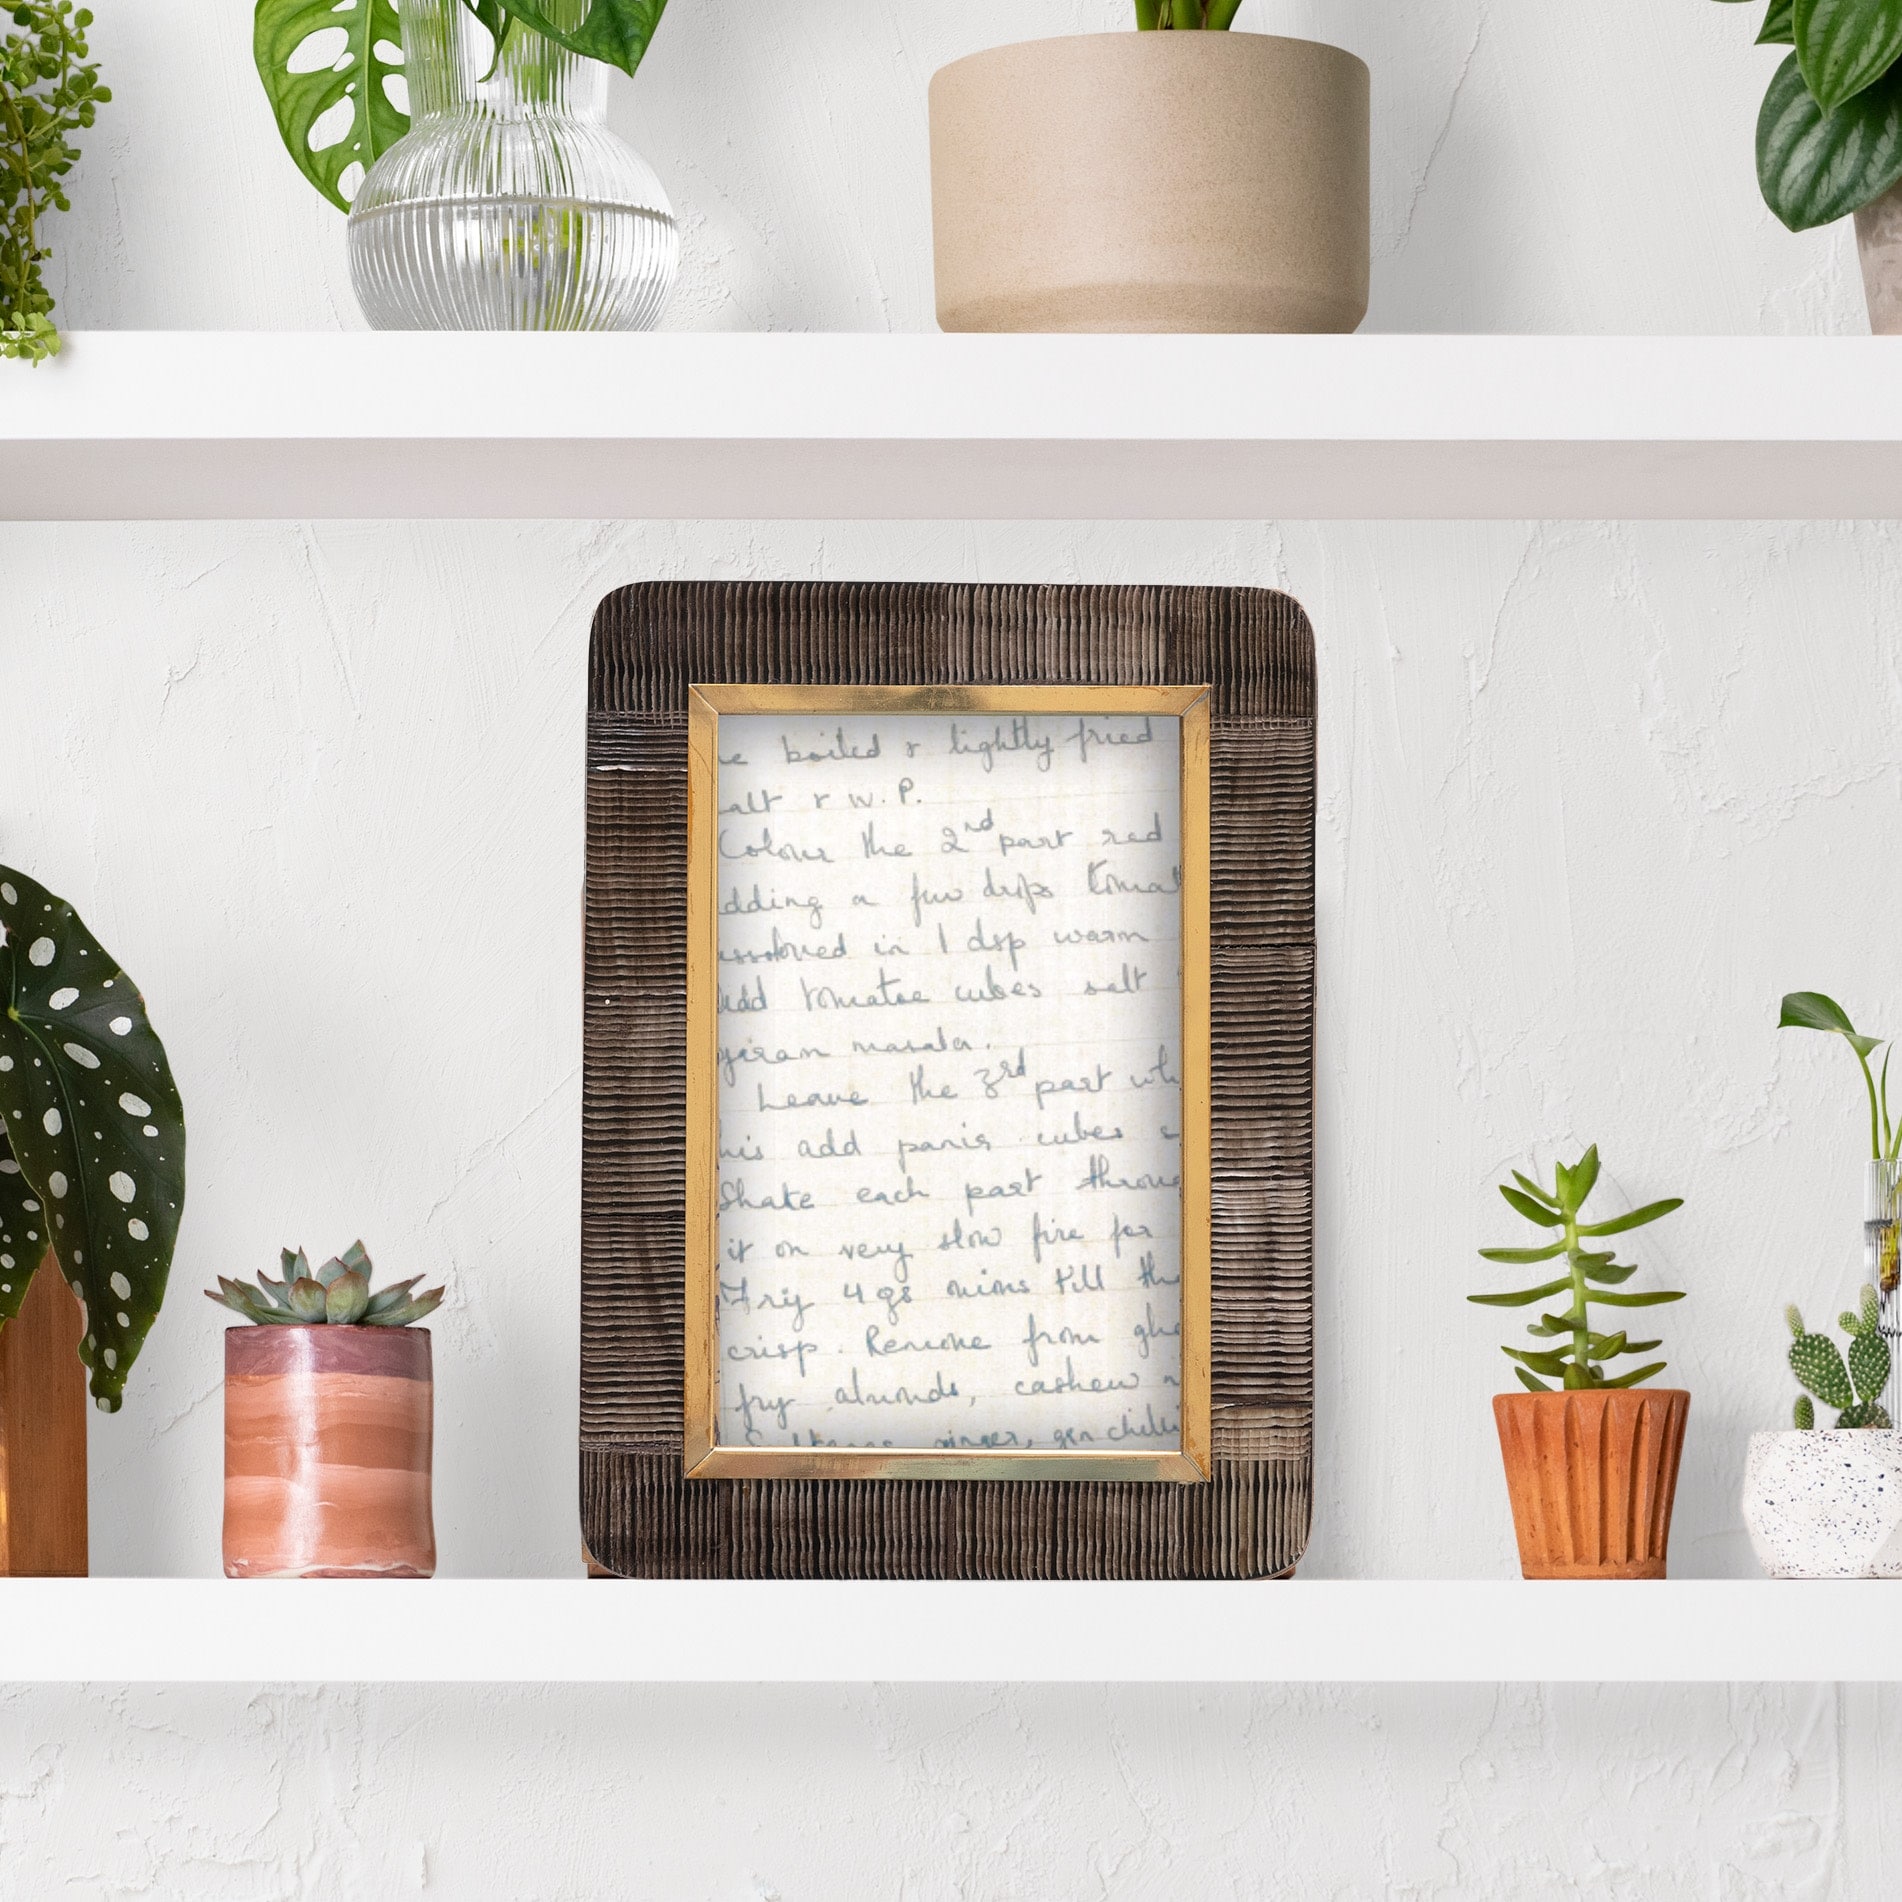 e boiled & lightly fried
alt & w.P.
Colour the 2nd part red
dding a few drops tomat
ssolved in 1 dsp warm
Add tomatoe cubes salt
garam masala.
Leave the 3rd part wh
his add panir cubes s
Shake each part throug
it on very slow fire for
Fry 4 gs onions till th
crisp. Remove from ghe
fry almonds, cashew n
Sultanas ginger, grn chilli